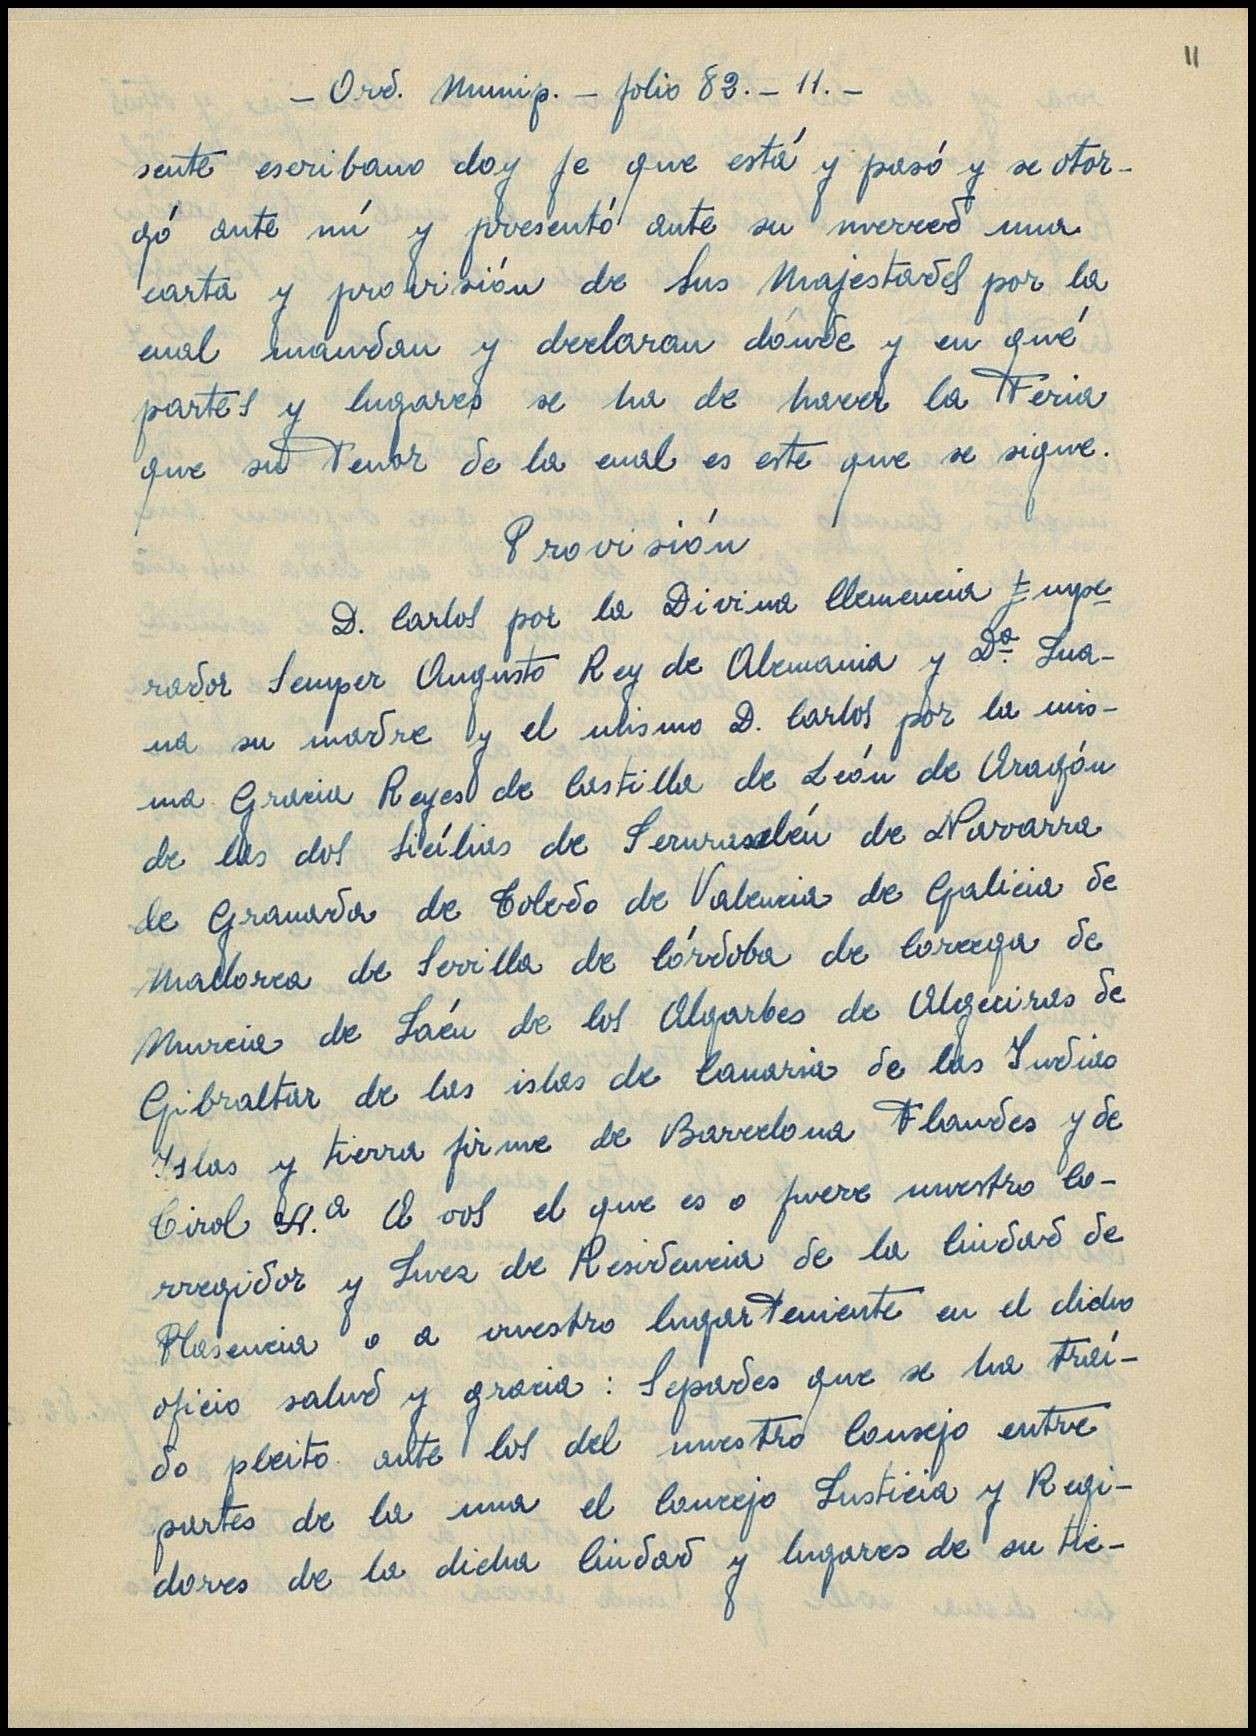 11
- Ord. Munip. - folio 82. - 11. -
sente escribano doy fe que está y pasó y se otor-
gó ante mí y presentó ante su merced una
carta y provisión de Sus Majestades por la
cual mandan y declaran dónde y en qué
partes y lugares se ha de hacer la Feria
que su Tenor de la cual es este que se sigue.
Provisión
D. Carlos por la Divina Clemencia Empe-
rador Semper Augusto Rey de Alemania y Dª. Jua-
na su madre y el mismo D. Carlos por la mis-
ma Gracia Reyes de Castilla de León de Aragón
de las dos Sicilias de Jerusalén de Navarra
de Granada de Toledo de Valencia de Galicia de
Mallorca de Sevilla de Córdoba de Córcega de
Murcia de Jaén de los Algarbes de Algeciras de
Gibraltar de las islas de Canaria de las Indias
Islas y tierra firme de Barcelona Flandes y de
Tirol A vos el que es o fuere nuestro Co-
rregidor y Juez de Residencia de la Ciudad de
Plasencia o a vuestro lugar Teniente en el dicho
oficio salud y gracia: Sepades que se ha traí-
do pleito ante los del nuestro Consejo entre
partes de la una el Concejo Justicia y Regi-
dores de la dicha Ciudad y lugares de su tie-